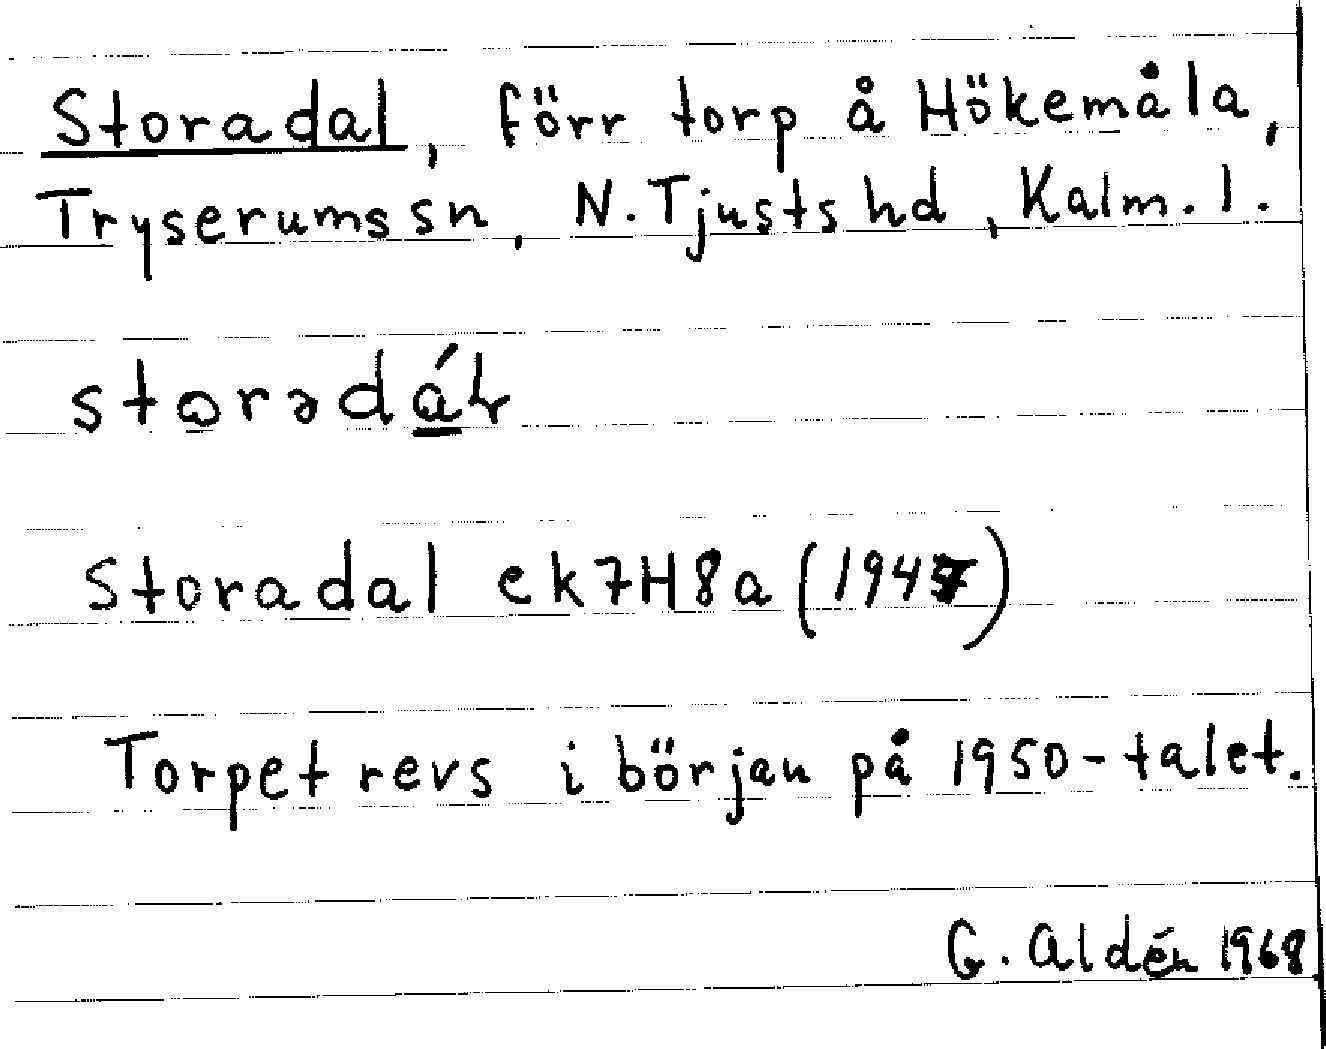 Storadal, förr torp å Hökemåla,
Tryserums sn, N. Tjusts hd, Kalm. l.
storədáɫ
Storadal ek 7H8a (1947)
Torpet revs i början på 1950-talet.
G. Aldén 1968